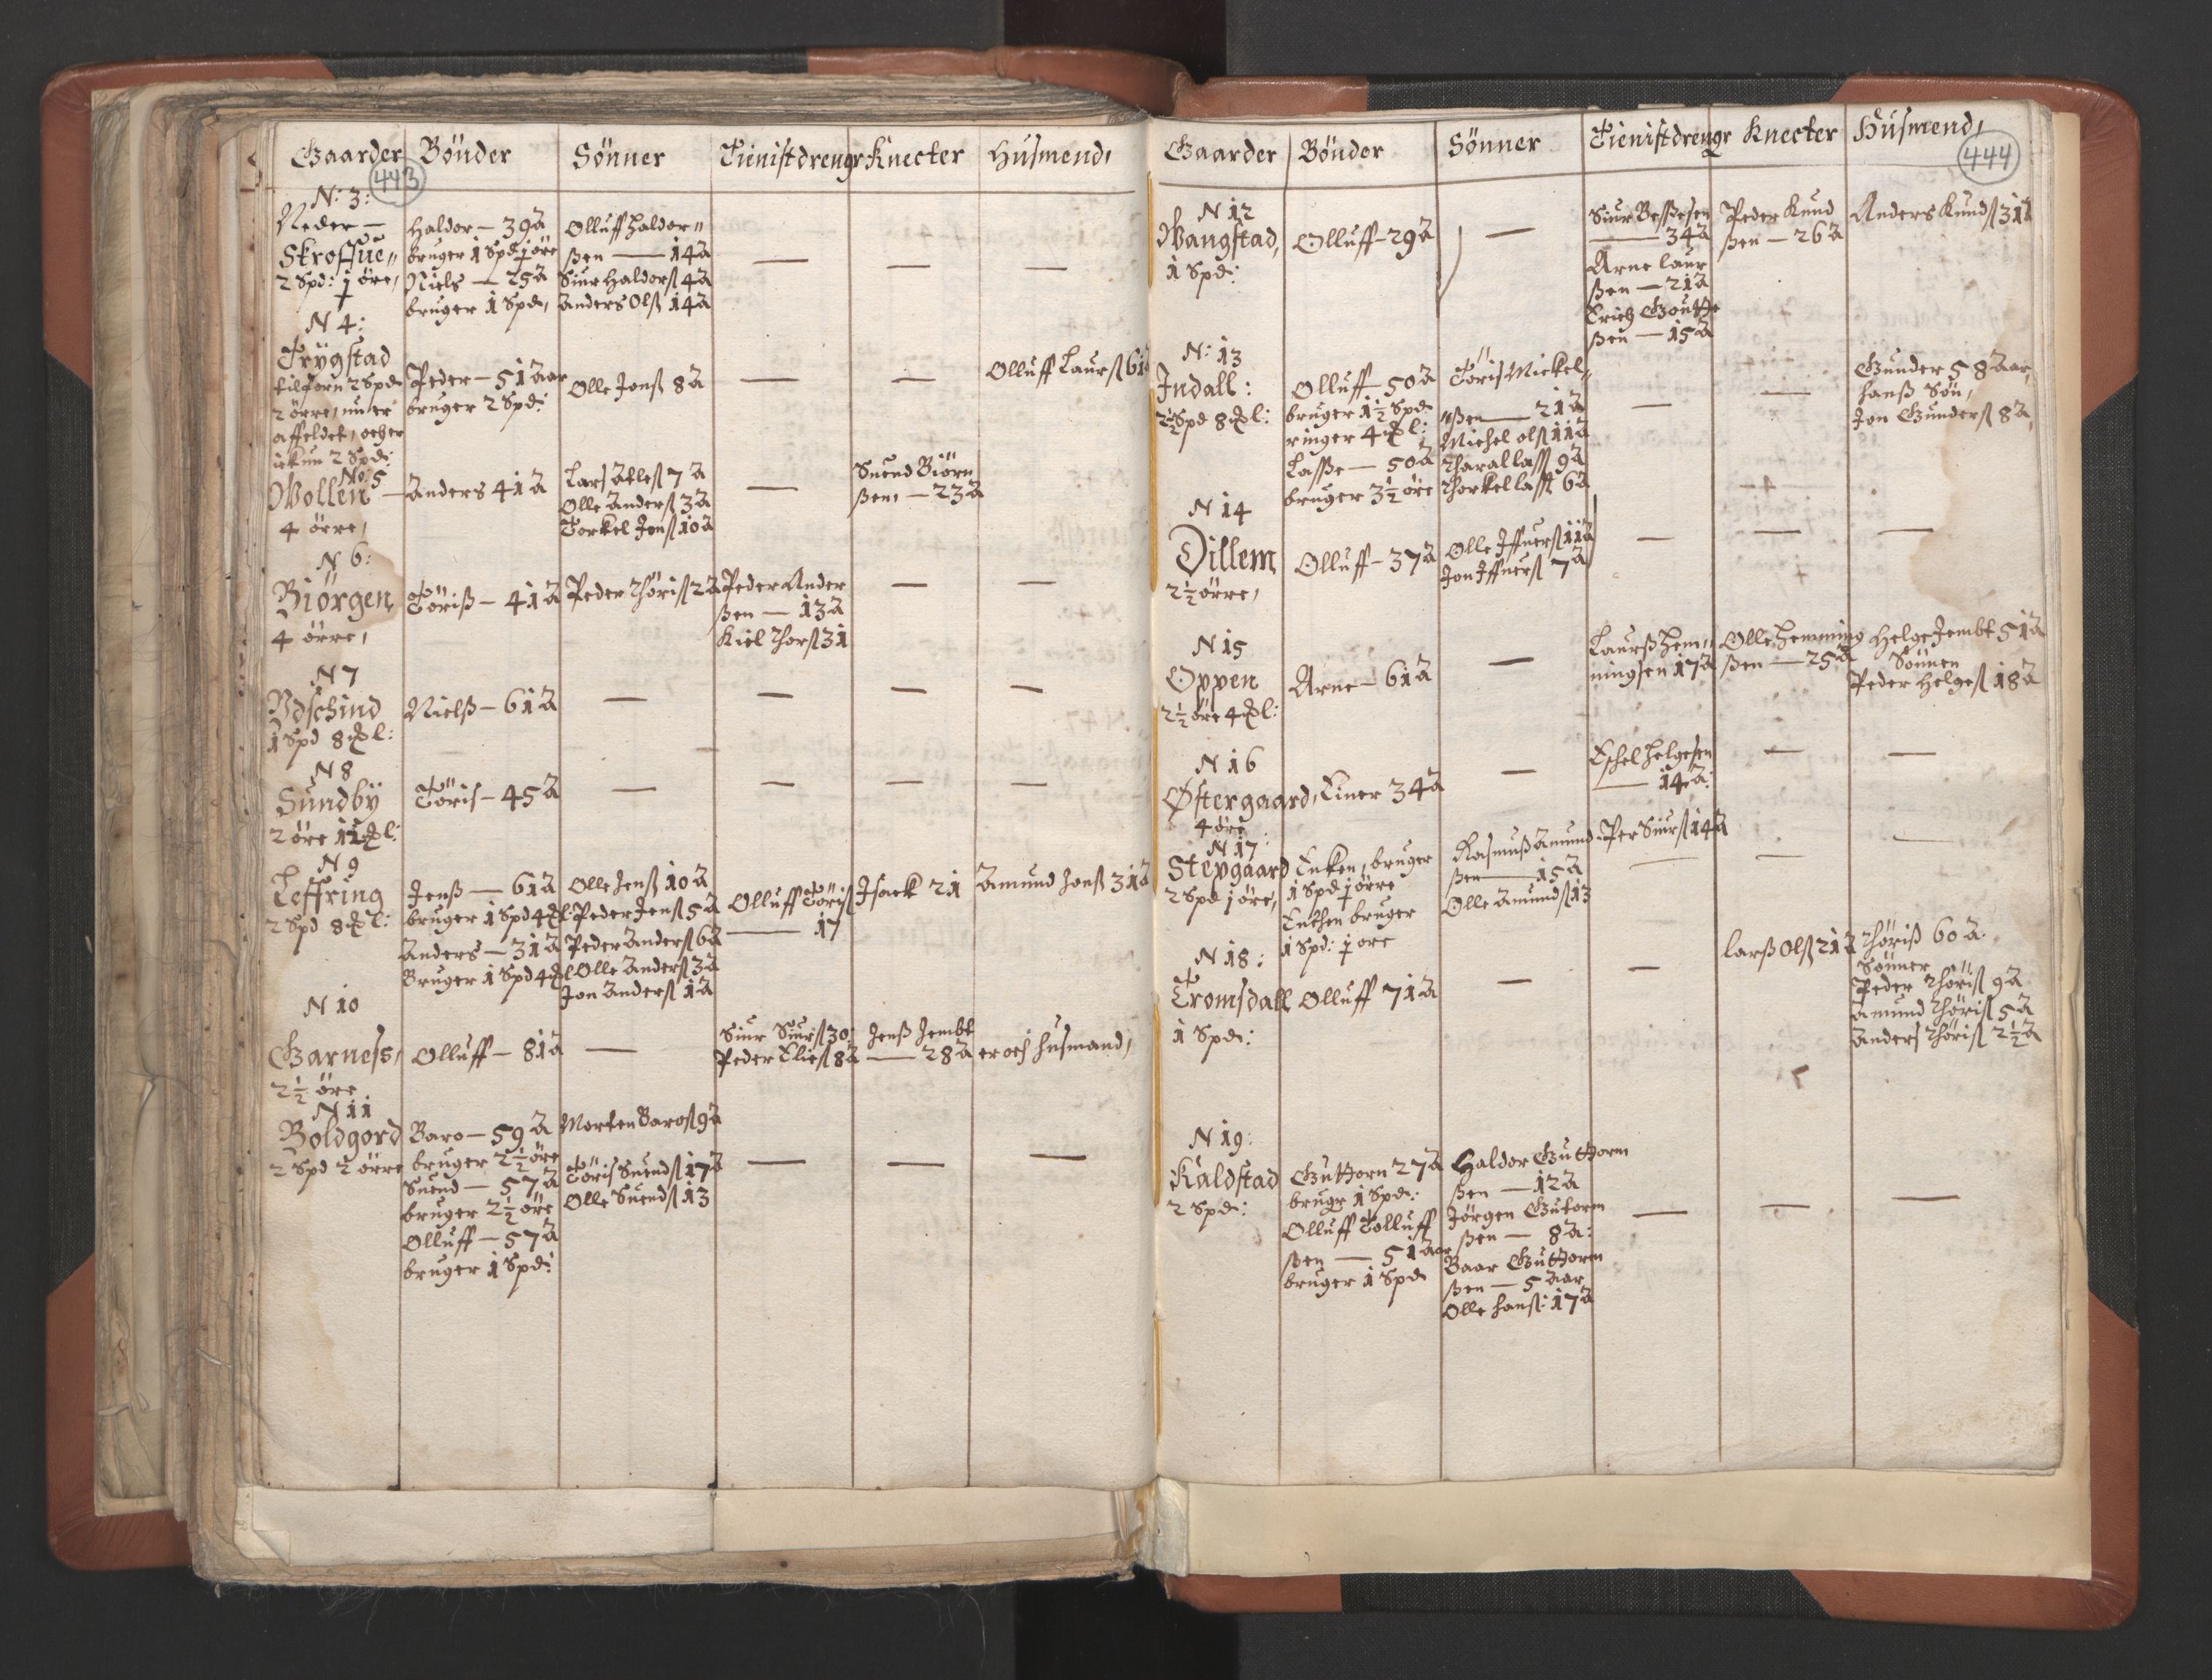 Gaarder Bönder Sönner Tienistdrenge Knecter Husmend,
443
N: 3:
Neder —
Skroffue„
2 Spd: j öre,
Haldor — 39 A
bruger 1 Spd j öre
Niels — 25 A
bruger 1 Spd,
Olluff Haldor„
ßen — 14 A
Siur Haldorß 4 A
Anders Olß 14 A
— — —
N 4:
Trygstad
tilforn 2 Spd
2 örre, nu er
affeldet, och er
ickun 2 Spd:
Peder — 51 Aar
bruger 2 Spd:
Olle Jonß 8 A
— —
Olluff Laurß 61
No: 5
Wollen —
4 örre,
Anders 41 A
Lars Atleß 7 A
Olle Anderß 3 A
Torkel Jonß 10 A
—
Suend Biörn
ßen, — 23 A
N 6:
Biörgen
4 örre,
Töriß — 41 A
Peder Thörisß 2 A
Peder Ander
ßen — 13 A
Kiel Thorß 31
— —
N 7
Vdschind
1 Spd 8 l:
Nielß — 61 A
— — — —
N 8
Sundby
2 öre 11 l:
Töris — 45 A
— — — —
N 9
Leffring
2 Spd 8 l:
Jenß — 61 A
bruger 1 Spd 4 l:
Anders — 31 A
Bruger 1 Spd 4 l
Olle Jenß 10 A
Peder Jenß 5 A
Peder Anderß 6 A
Olle Anderß 3 A
Jon Anderß 1 A
Olluff Törisß
— 17
Isack 21
Amund Jonß 31 A
N 10
Garness,
2½ öre
Olluff — 81 A
—
Siur Siurß 30:
Peder Eließ 8 A
Jenß Jembt
— 28 A
er och husmand,
N 11
Boldgord
2 Spd 2 örre
Baro — 59 A
bruger 2½ öre
Suend — 57 A
bruger 2½ öre
Olluff — 57 A
bruger 1 Spd:
Morten Baroß 9 A
Töris Suendß 17 A
Olle Suendß 13
— — —
Gaarder Bönder Sönner Tienistdrengr Knecter Husmend,
444
N 12
Wangstad,
1 Spd:
Olluff — 29 A
—
Siur Beßesen
— 34 A
Arne Laur
ßen — 21 A
Erich Goutte
ßen — 15 A
Peder Knud
ßen — 26 A
Anders Kundß 31
N: 13
Indall:
2½ Spd 8 l:
Olluff — 50 A
bruger 1½ Spd
ringer 4 l:
Laße — 50 A
bruger 3½ öre
Töris Mickel„
„ßen — 21 A
Michel olß 11 A
Tharal lasß 9 A
Thorkel lasß 6 A
— —
Gunder 58 Aar,
hanß Sön,
Jon Gunderß 8 A,
N 14
Dillem
2½ örre,
Olluff — 37 A
Olle Iffuerß 11 A
Jon Iffuerß 7 A
— — —
N 15
Oppen
2½ öre 4 l:
Arne — 61 A
—
Laurß Hem„
ningsen 17 A
Olle Hemming
ßen — 25 A
Helge Jembt 51 A
Sönnen
Peder Helgeß 18 A
N 16
Østergaard,
4 öre
Einer 34 A
—
Eschel Helgesen
— 14 A:
— —
N 17:
Stepgaard
2 Spd j öre,
Enken, bruger
1 Spd j örre
Enchen bruger
1 Spd: j ore
Rasmuß Amund
ßen — 15 A
Olle Amundß 13
Per Siurß 14 A
— — —
N 18:
Tromsdall
1 Spd:
Olluff 71 A
— —
larß Olß 21 A
Thöriß 60 A:
Sönner
Peder Thörisß 9 A
Amund Thörisß 5 A
Anders Thörisß 2½ A
N 19:
Kaldstad
2 Spd:
Guttorn 27 A
brugr 1 Spd:
Olluff Tolluff
ßen — 51 Aar
bruger 1 Spd
Haldor Guttorm
ßen — 12 A
Jörgen Gutorm
ßen — 8 A:
Baar Guttorm
ßen — 5 Aar
Olle hanß: 17 A
— — —